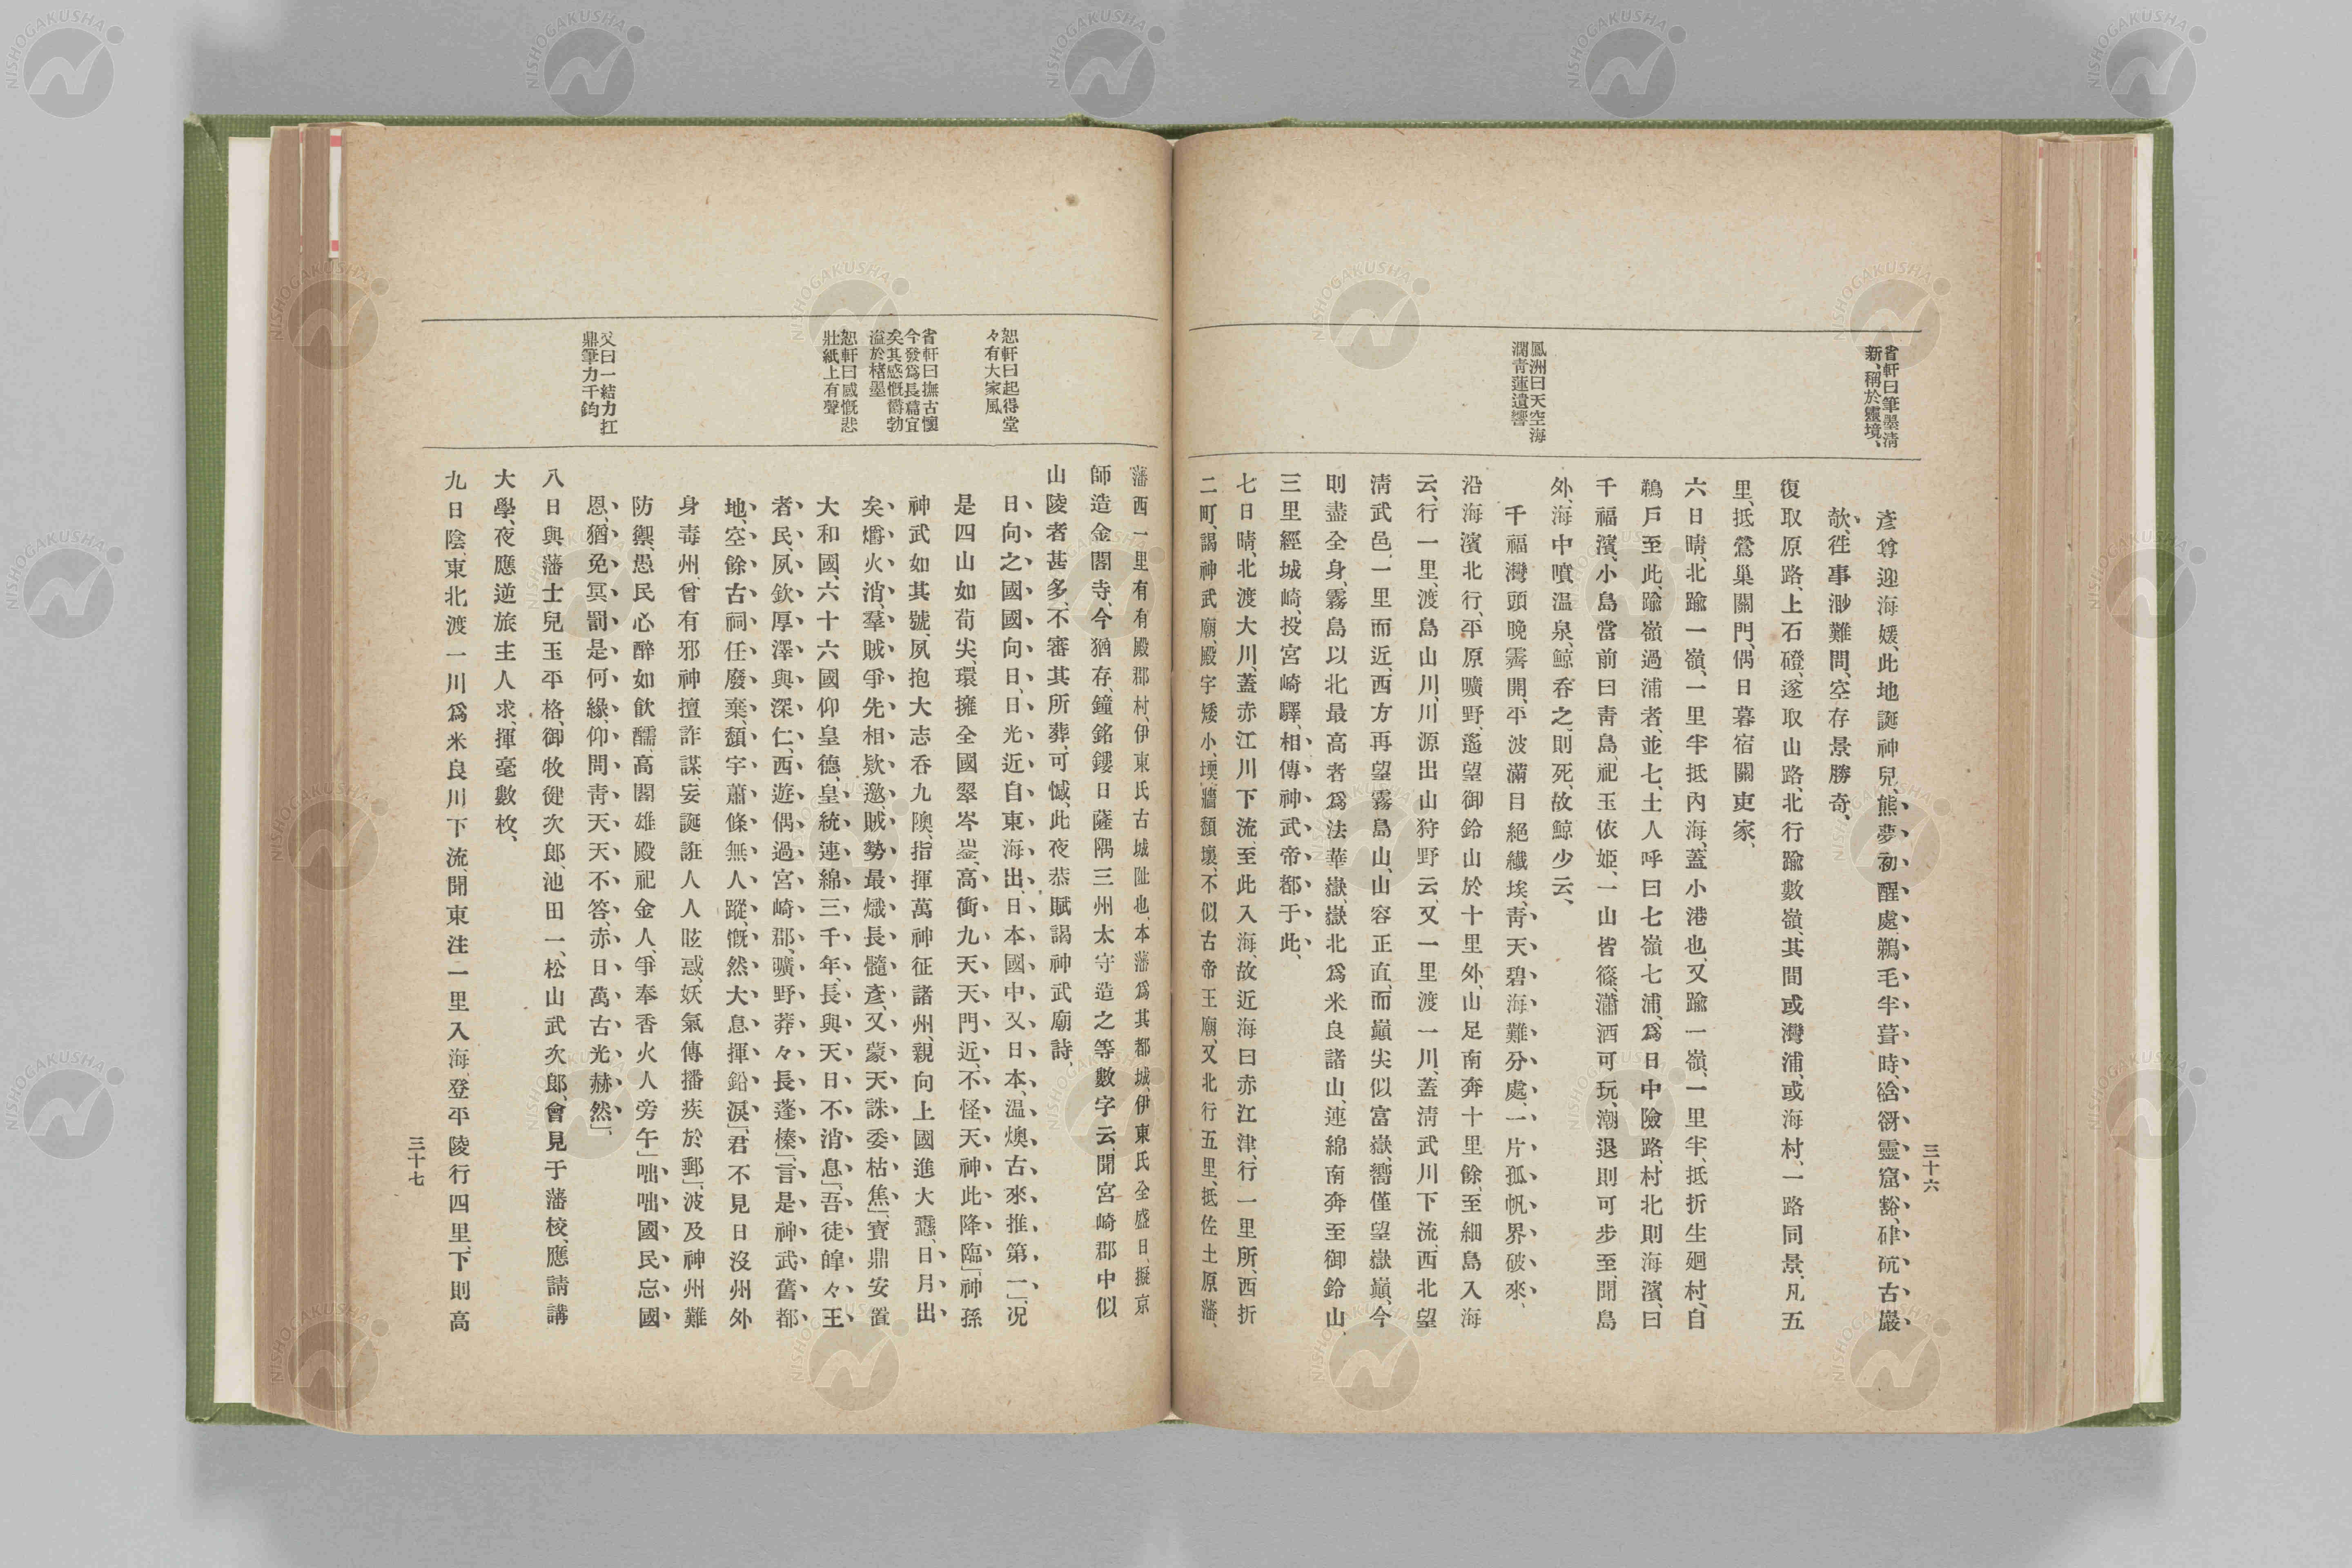 三十六
省軒曰筆墨淸
新、稱於靈境、
鳳洲曰天空海
濶靑蓮遺響
彥尊迎海媛、此地誕神兒、熊夢初醒處、鵜毛半葺時、谽谺靈窟豁、硉矹古巖
欹、徃事渺難問、空存景勝奇、
復取原路、上石磴、遂取山路、北行踰數嶺、其間或灣浦、或海村、一路同景、凡五
里、抵鶯巢關門、偶日暮宿關吏家、
六日晴、北踰一嶺、一里半抵內海、蓋小港也、又踰一嶺、一里半、抵折生廻村、自
鵜戶至此、踰嶺過浦者、並七、土人呼曰七嶺七浦、爲日中險路、村北則海濱、曰
千福濱、小島當前曰靑島、祀玉依姬、一山皆篠、瀟洒可玩、潮退則可步至、聞島
外、海中噴温泉、鯨呑之、則死、故鯨少云、
千福灣頭晚霽開、平波滿目絕纖埃、靑天碧海難分處、一片孤帆界破來、
沿海濱北行、平原曠野、遙望御鈴山於十里外、山足南奔十里餘、至細島入海
云、行一里、渡島山川、川源出山狩野云、又一里渡一川、蓋淸武川下流、西北望
淸武邑、一里而近、西方再望霧島山、山容正直、而巓尖似富嶽、嚮僅望嶽巓、今
則盡全身、霧島以北最高者爲法華嶽、嶽北爲米良諸山、連綿南奔至御鈴山、
三里經城崎、投宮崎驛、相傳神武帝都于此、
七日晴、北渡大川、蓋赤江川下流、至此入海、故近海曰赤江津、行一里所、西折
二町、謁神武廟、殿宇矮小、堧牆頹壞、不似古帝王廟、又北行五里、抵佐土原藩、
恕軒曰起得堂
々有大家風
省軒曰撫古懷
今發爲長篇宜
矣其感慨欝勃
溢於楮墨
恕軒曰感慨悲
壯紙上有聲
又曰一結力扛
鼎筆力千鈞
藩西一里有有殿郡村、伊東氏古城阯也、本藩爲其都城、伊東氏全盛日、擬京
師造金閣寺、今猶存、鐘銘鏤日薩隅三州太守造之等數字云、聞宮崎郡中似
山陵者甚多、不審其所葬、可憾、此夜恭賦謁神武廟詩、
日向之國國向日、日光近自東海出、日本國中又日本、温燠古來推第一」、况
是四山如荀尖、環擁全國翠岑崟、高衝九天天門近、不怪天神此降臨」、神孫
神武如其號、夙抱大志呑九隩、指揮萬神征諸州、親向上國進大纛、日月出
矣爝火消、羣賊爭先相欵邀、賊勢最熾長髓彥、又蒙天誅委枯焦」、寳鼎安置
大和國、六十六國仰皇德、皇統連綿三千年、長與天日不消息」、吾徒皥々王
者民、夙欽厚澤與深仁、西遊偶過宮崎郡、曠野莽々長蓬榛」、言是神武舊都
地、空餘古祠任廢棄、頹宇蕭條無人蹤、慨然大息揮鉛淚」、君不見日沒州外
身毒州、曾有邪神擅詐謀、妄誕誑人人眩惑、妖氣傳播疾於郵」、波及神州難
防禦、愚民心醉如飮醹、高閣雄殿祀金人、爭奉香火人旁午」、咄咄國民忘國
恩、猶免冥罰是何緣、仰問靑天天不答、赤日萬古光赫然」、
八日與藩士兒玉平格、御牧健次郎、池田一、松山武次郎、會見于藩校、應請講
大學、夜應逆旅主人求、揮毫數枚、
九日陰、東北渡一川爲米良川下流、聞東注一里入海、登平陵行四里、下則高
三十七